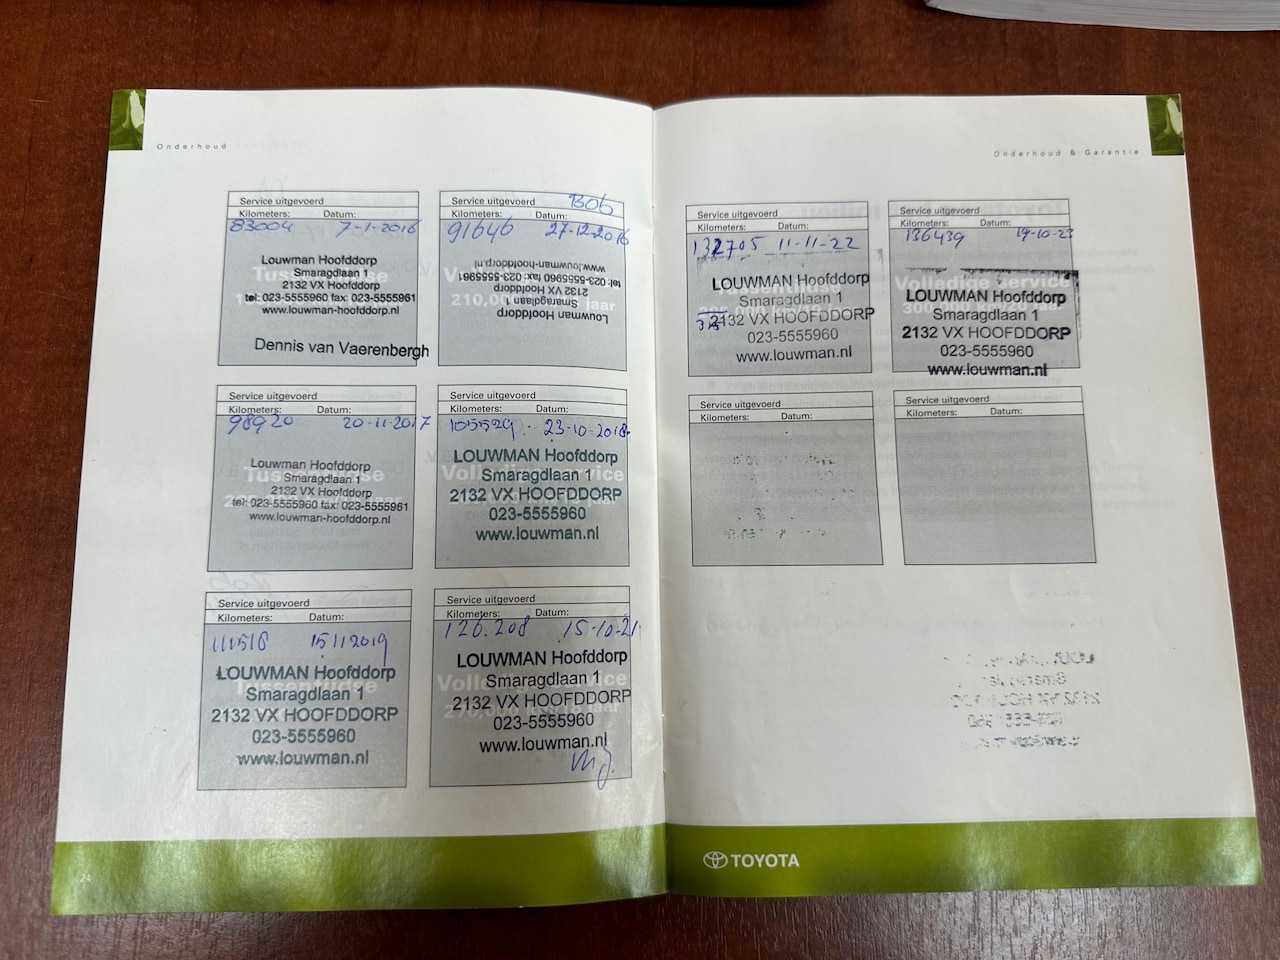 Onderhoud
Service uitgevoerd
Kilometers: Datum:
83004 7-1-2016
Tussentijdse
Louwman Hoofddorp
Smaragdlaan 1
2132 VX Hoofddorp
tel: 023-5555960 fax: 023-5555961
www.louwman-hoofddorp.nl
Dennis van Vaerenbergh
Service uitgevoerd Bob
Kilometers: Datum:
91646 27-12-2016
210,000 jaar
Louwman Hoofddorp
Smaragdlaan 1
2132 VX Hoofddorp
tel: 023-5555960 fax: 023-5555961
www.louwman-hoofddorp.nl
Service uitgevoerd
Kilometers: Datum:
98920 20-11-2017
Tussentijdse
Louwman Hoofddorp
Smaragdlaan 1
2132 VX Hoofddorp
tel: 023-5555960 fax: 023-5555961
www.louwman-hoofddorp.nl
Service uitgevoerd
Kilometers: Datum:
23-10-2018
Volledige service
LOUWMAN Hoofddorp
Smaragdlaan 1
2132 VX HOOFDDORP
023-5555960
www.louwman.nl
Service uitgevoerd
Kilometers: Datum:
111518 15112019
Tussentijdse
LOUWMAN Hoofddorp
Smaragdlaan 1
2132 VX HOOFDDORP
023-5555960
www.louwman.nl
Service uitgevoerd
Kilometers: Datum:
126.208 15-10-21
Volledige service
270,000 jaar
LOUWMAN Hoofddorp
Smaragdlaan 1
2132 VX HOOFDDORP
023-5555960
www.louwman.nl
24
Onderhoud & Garantie
Service uitgevoerd
Kilometers: Datum:
132705 11-11-22
Tussentijdse
LOUWMAN Hoofddorp
Smaragdlaan 1
2132 VX HOOFDDORP
023-5555960
www.louwman.nl
Service uitgevoerd
Kilometers: Datum:
136439 19-10-23
Volledige service
300,000 jaar
LOUWMAN Hoofddorp
Smaragdlaan 1
2132 VX HOOFDDORP
023-5555960
www.louwman.nl
Service uitgevoerd
Kilometers: Datum:
Service uitgevoerd
Kilometers: Datum:
TOYOTA